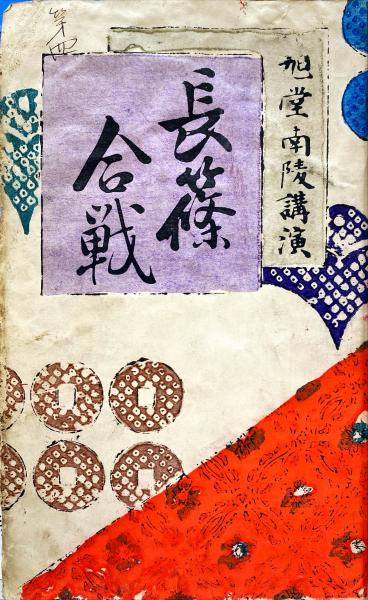 旭堂南陵講演
長篠
合戦
第四